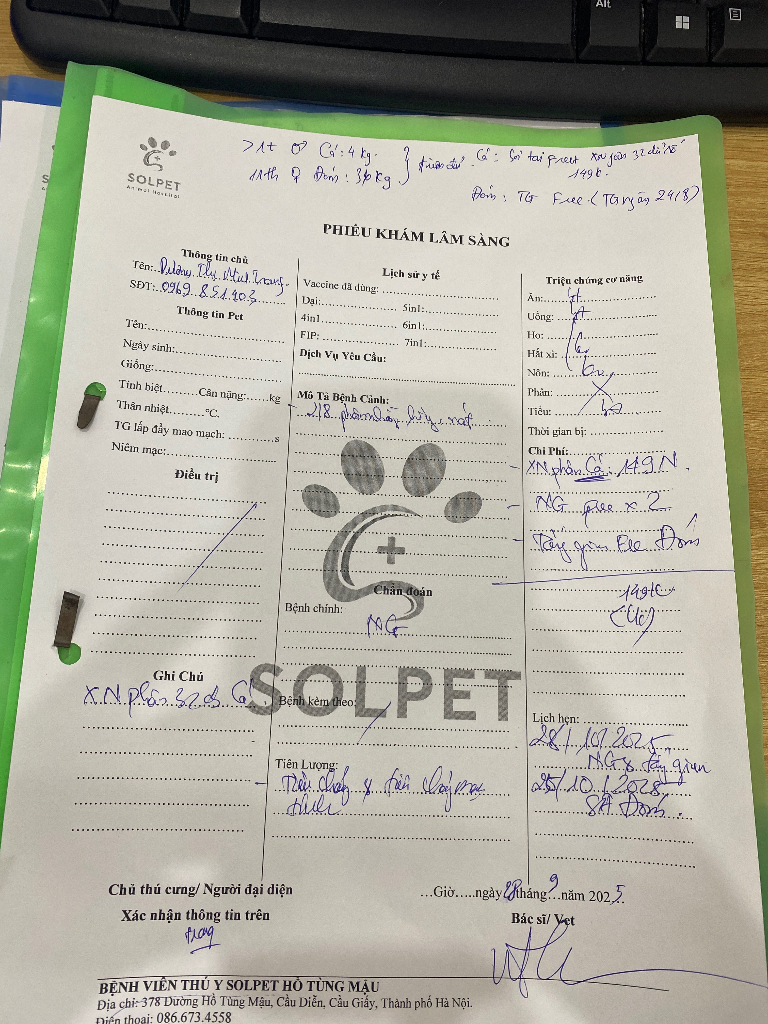 Alt
>1t ♂ Cá: 4 kg.
11th ♀ Đốm: 3,6 kg
Cá:
149k.
Đốm: TG Free (Tẩy giun 24/8)
SOLPET
Animal Hospital
PHIẾU KHÁM LÂM SÀNG
Thông tin chủ
Tên: Dương Thị Trang
SĐT: 0969.851.403
Thông tin Pet
Tên:
Ngày sinh:
Giống:
Tính biệt Cân nặng: kg
Thân nhiệt °C.
TG lấp đầy mao mạch: s
Niêm mạc:
Điều trị
Ghi Chú
XN phân 32đ Cá
Lịch sử y tế
Vaccine đã dùng:
Dại: 5in1:
4in1 6in1:
FIP: 7in1:
Dịch Vụ Yêu Cầu:
Mô Tả Bệnh Cảnh:
- 2/8 phân
Chẩn đoán
Bệnh chính:
NG
SOLPET
Bệnh kèm theo:
Tiên Lượng:
Triệu chứng cơ năng
Ăn: bt
Uống: bt
Ho:
Hắt xì:
Nôn:
Phân:
Tiểu:
Thời gian bị:
Chi Phí:
- XN phân Cá: 149N.
- NG free x 2
- Tẩy giun Free Đốm
149k
Lịch hẹn:
28/10/2025
NG & tẩy giun
25/10/2025
SÂ Đốm.
Chủ thú cưng/ Người đại diện
Xác nhận thông tin trên
trang
…Giờ…..ngày 28 tháng 9 năm 2025
Bác sĩ/ Vet
BỆNH VIỆN THÚ Y SOLPET HỒ TÙNG MẬU
Địa chỉ: 378 Đường Hồ Tùng Mậu, Cầu Diễn, Cầu Giấy, Thành phố Hà Nội.
Điện thoại: 086.673.4558